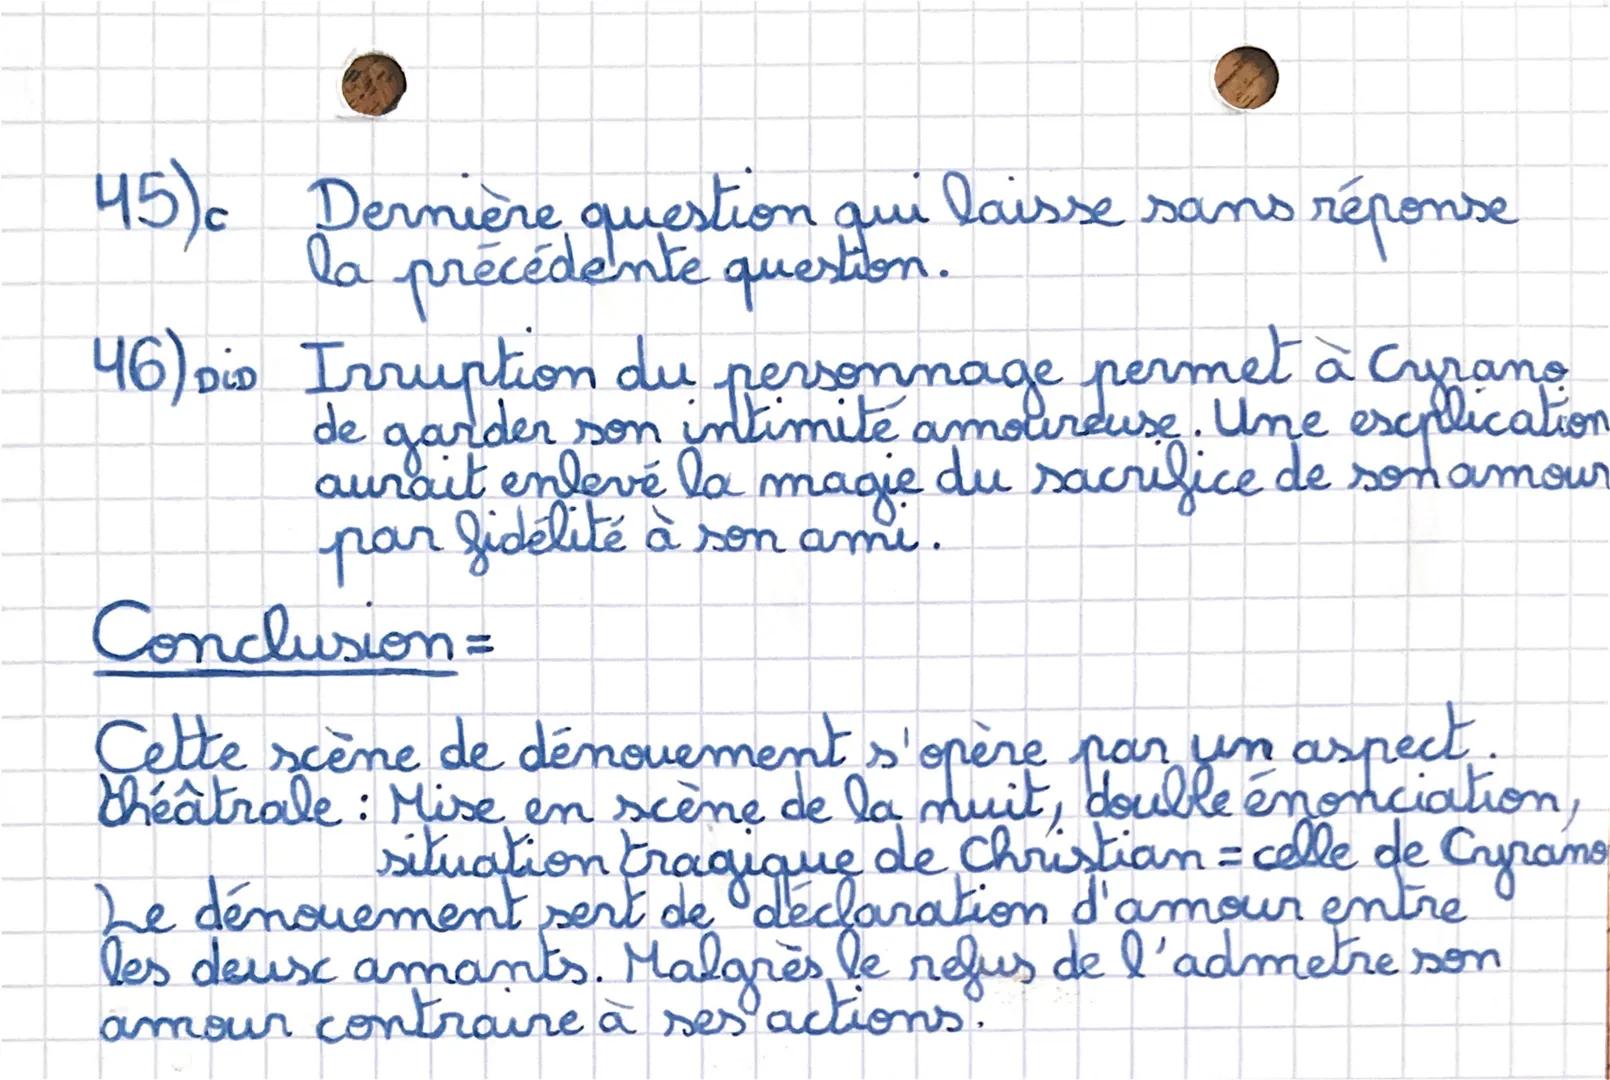 45)c Dernière question qui laisse sans réponse
la précédente question.
46) DiD Irruption du personnage permet à Cyrano
de garder son intimité amoureuse. Une explication
aurait enlevé la magie du sacrifice de son amour
par fidélité à son ami.
Conclusion =
Cette scène de dénouement s'opère par un aspect
théâtrale : Mise en scène de la nuit, double énonciation,
situation tragique de Christian = celle de Cyrano
Le dénouement sert de déclaration d'amour entre
les deux amants. Malgrès le refus de l'admetre son
amour contraire à ses actions.